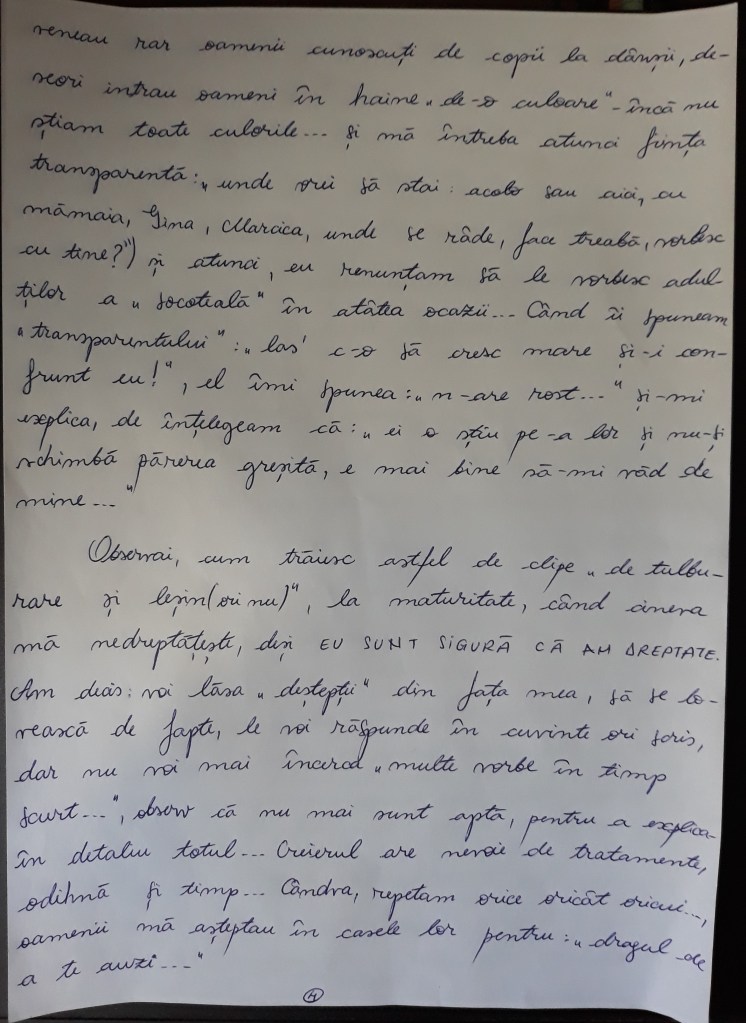 veneau rar oamenii cunoscuți de copii la dânșii, de-
seori intrau oameni în haine „de-o culoare" - încă nu
știam toate culorile... Și mă întreba atunci ființa
transparentă: „unde vrei să stai: acolo sau aici, cu
mămaia, Gina, Marcica, unde se râde, fac treabă, vorbesc
cu tine?") și atunci, eu renunțam să le vorbesc adul-
ților a „socoteală" în atâtea ocazii... Când îi spuneam
„transparentului": „las' c-o să cresc mare și-i con-
frunt eu!", el îmi spunea: „n-are rost..." și-mi
explica, de înțelegeam că: „ei o știu pe-a lor și nu-și
schimbă părerea greșită, e mai bine să-mi văd de
mine..."
Observai, cum trăiesc astfel de clipe „de tulbu-
rare și leșin (ori nu)", la maturitate, când cineva
mă nedreptățește, deși EU SUNT SIGURĂ CĂ AM DREPTATE.
Am decis: voi lăsa „deștepții" din fața mea, să se lo-
vească de fapte, le voi răspunde în cuvinte ori scris,
dar nu voi mai încerca „multe vorbe în timp
scurt...", observ că nu mai sunt aptă, pentru a explica-
în detaliu totul... Creierul are nevoie de tratamente,
odihnă și timp... Cândva, repetam orice oricât oricui...,
oamenii mă așteptau în casele lor pentru: „dragul de
a te auzi..."
14